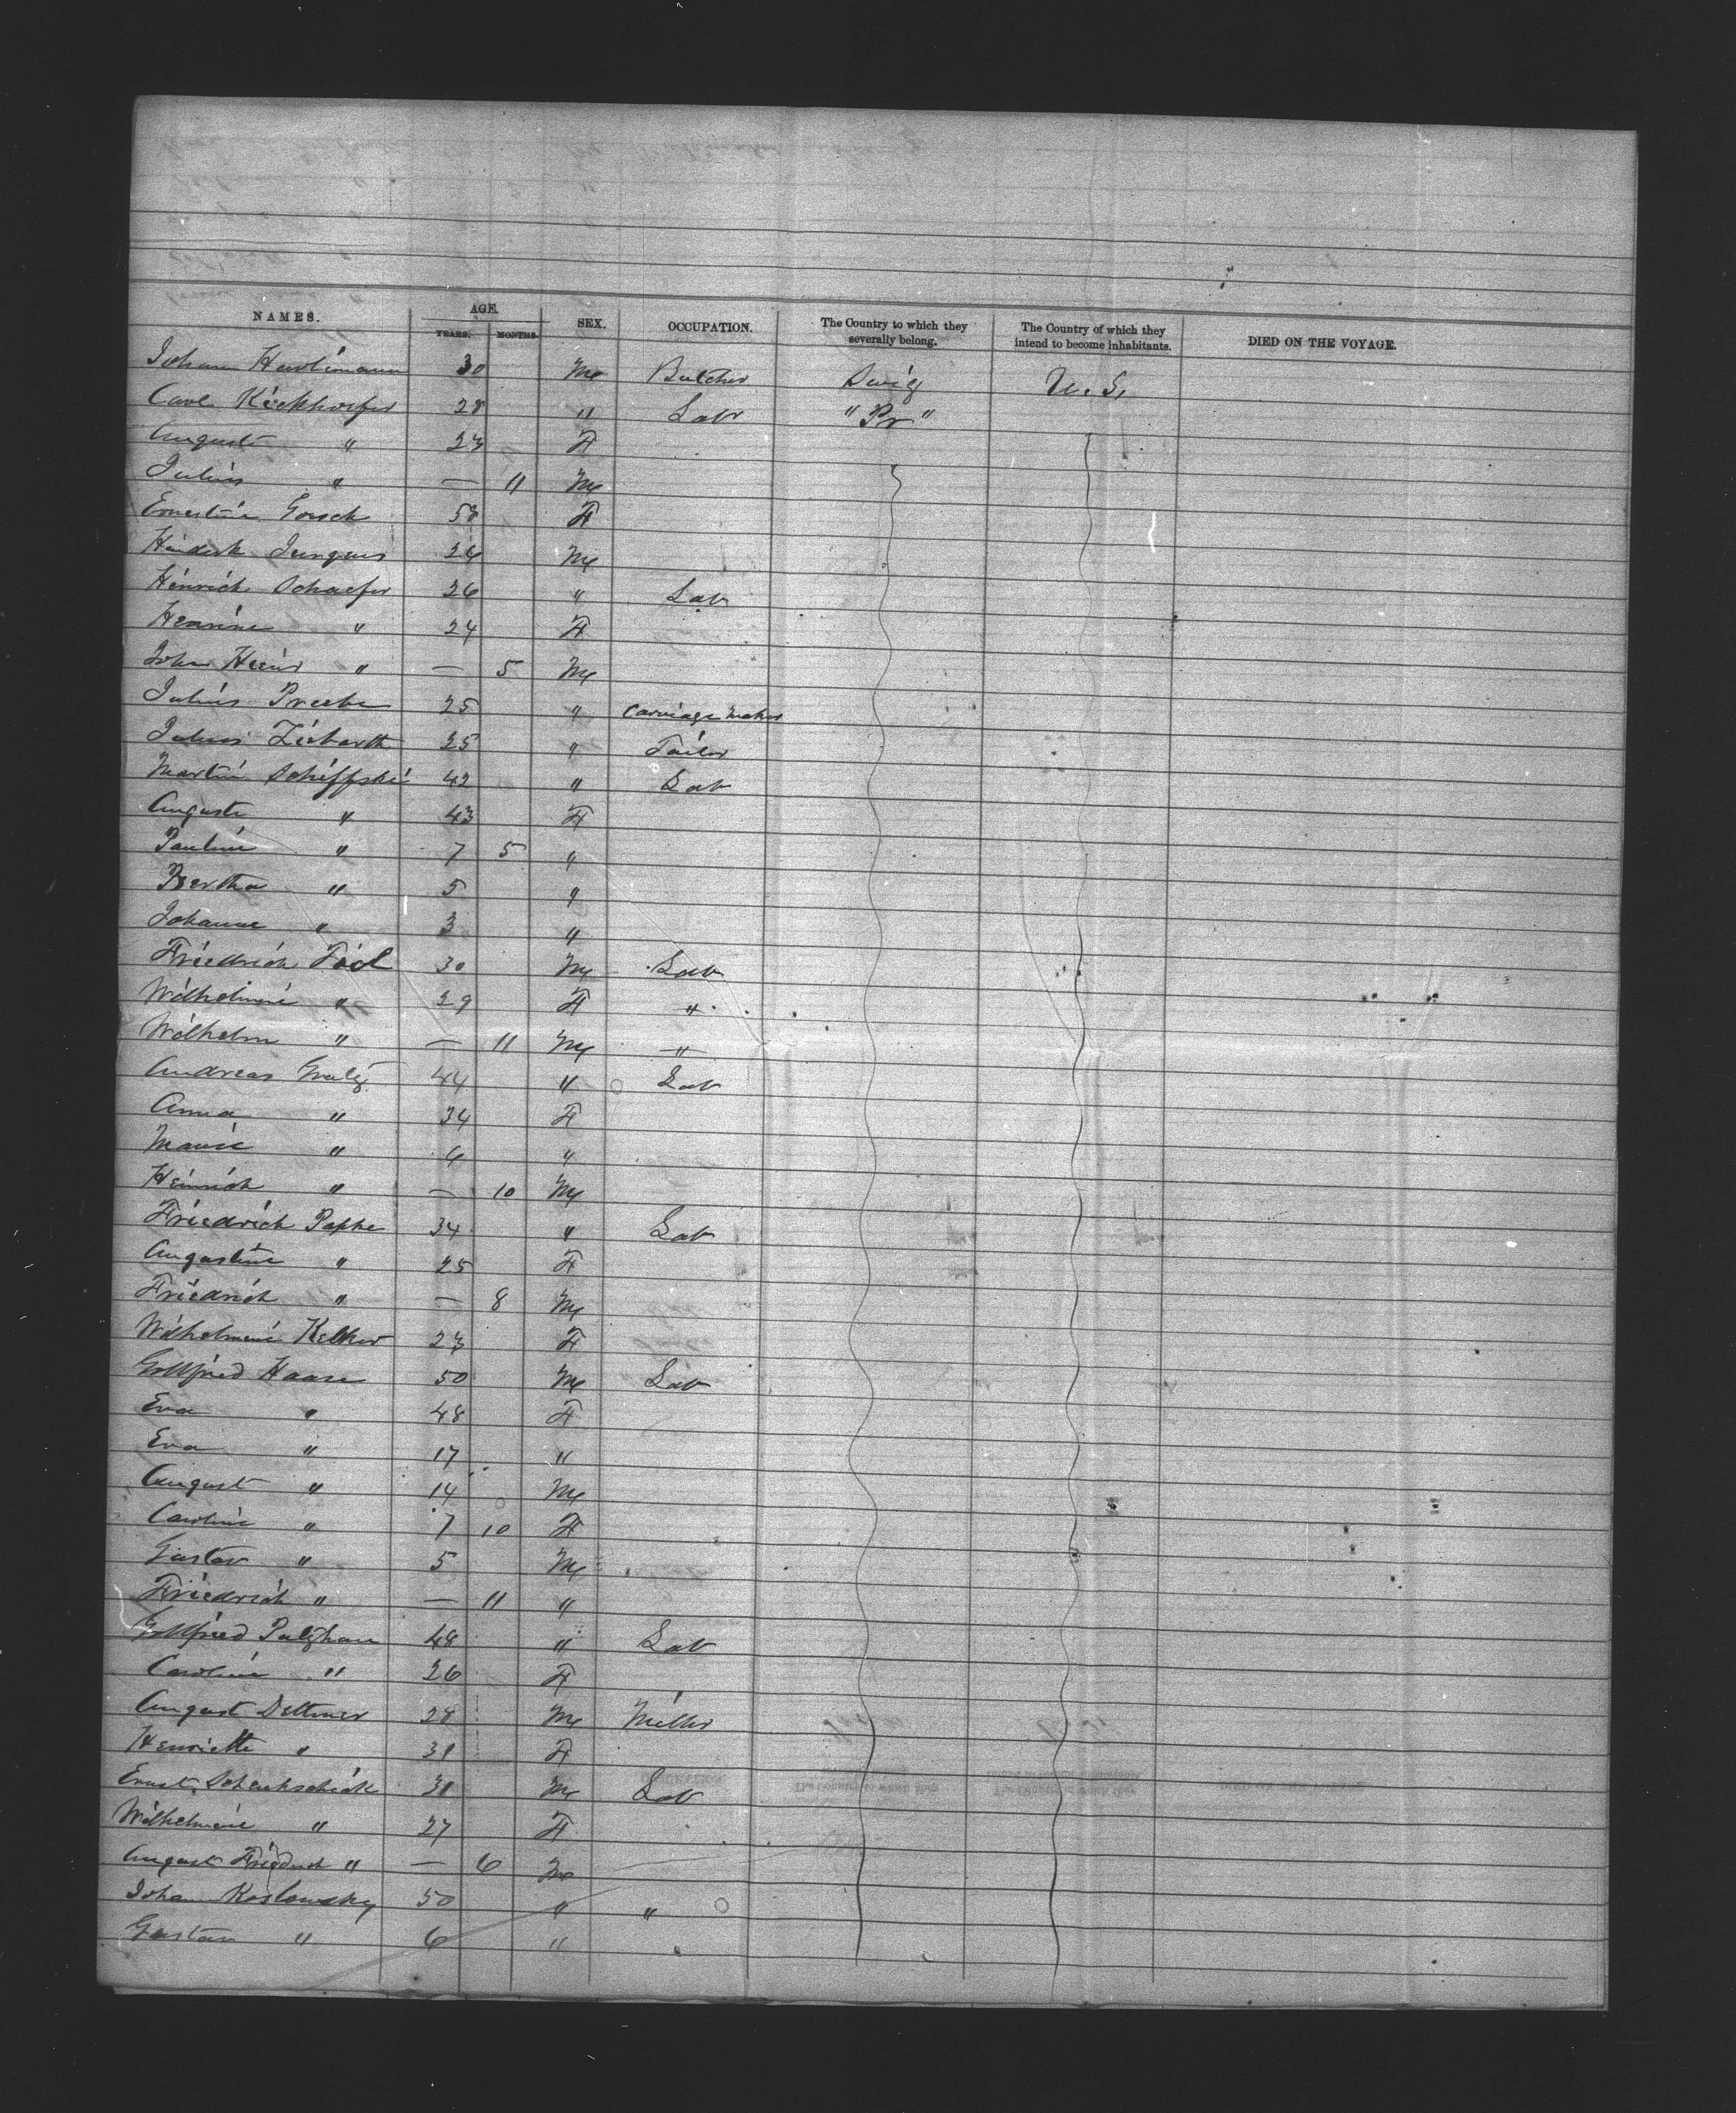 NAMES. AGE. YEARS. MONTHS. SEX. OCCUPATION. The Country to which they severally belong. The Country of which they intend to become inhabitants. DIED ON THE VOYAGE.
Johann Hurlimann 30 M Butcher Swig U.S.
Carl Kickhoefer 28 " Lab "Pr"
Auguste " 23 F
Julius " — 11 M
Ernestine Gorsch 58 F
Hinderk Jungens 24 M
Heinrich Schaefer 26 " Lab
Henrine " 24 F
John Heinr " — 5 M
Julius Preebe 25 " Carriage maker
Julius Ziebarth 25 " Tailor
Martin Schiffski 42 " Lab
Auguste " 43 F
Pauline " 7 5 "
Bertha " 5 "
Johanne " 3 "
Friedrich Tiel 30 M Lab
Wilhelmine " 29 F "
Wilhelm " — 11 M "
Andreas Gralz 44 " Lab
Anna " 34 F
Marie " 4 "
Heinrich " — 10 M
Friedrich Papke 34 " Lab
Augustine " 25 F
Friedrich " — 8 M
Wilhelmine Kelker 23 F
Gottfried Haase 50 M Lab
Eva " 48 F
Eva " 17 "
August " 14 M
Caroline " 7 10 F
Gustav " 5 M
Friedrich " — 11 "
Gottfried 48 " Lab
Caroline " 26 F
August Dettmer 28 M Miller
Henriette " 31 F
Ernst 31 M Lab
Wilhelmine " 27 F
August Friedrich " — 6 M
Johan Koslowsky 50 " "
Gustav " 6 "